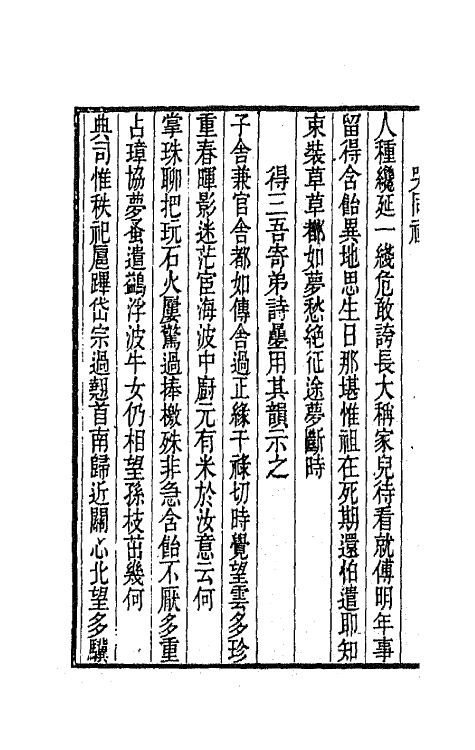 人種纔延一綫危敢誇長大稱家兒待看就傅明年事
留得含飴異地思生日那堪惟祖在死期還怕遣耶知
束裝草草都如夢愁絕征途夢斷時
得三吾寄弟詩疊用其韻示之
子舍兼官舍都如傳舍過正緣干祿切時覺望雲多珍
重春暉影迷茫宦海波中廚元有米於汝意云何
掌珠聊把玩石火屢驚過捧檄殊非急含飴不厭多重
占璋協夢蚤遣鷁浮波牛女仍相望孫枝茁幾何
典司惟秩祀扈蹕岱宗過翹首南歸近關心北望多驥